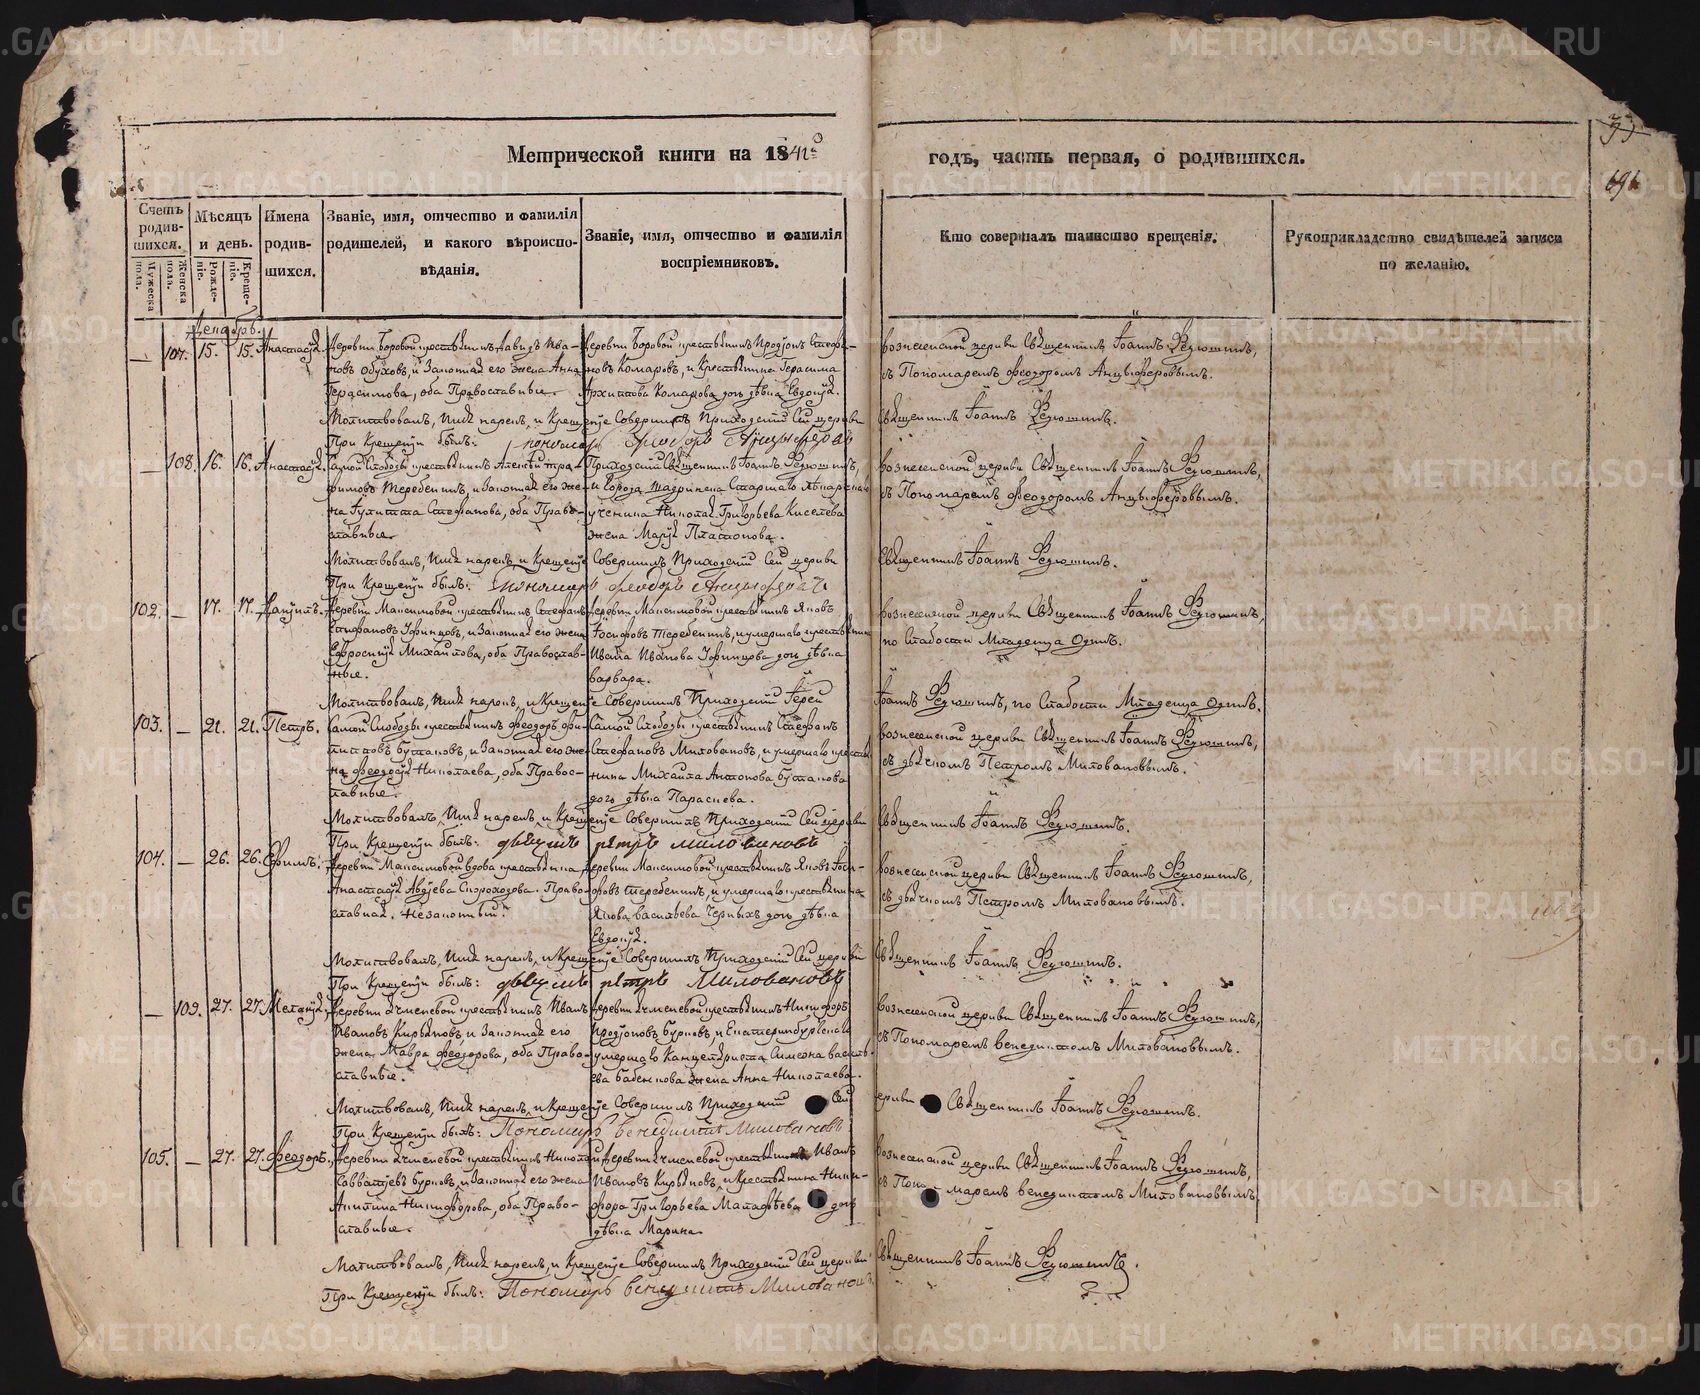 Метрической книги на 1841го
годъ, часть первая, о родившихся.
Счетъ родив-шихся.
Мужеска пола.
Женска пола.
Мѣсяцъ и день.
Рожде-ніе.
Креще-ніе.
Имена родив-шихся.
Званіе, имя, отчество и фамилія
родителей, и какого вѣроиспо-
вѣданія.
Званіе, имя, отчество и фамилія
воспріемниковъ.
Кто совершалъ таинство крещенія.
Рукоприкладство свидѣтелей записи
по желанію.
Декабрь.
— 107. 15. 15. Анастасія.
Деревни Боровой крестьянинъ Давидъ Ива-
новъ Обуховъ, и Законная его жена Анна
Герасимова, оба Православные.
Деревни Боровой крестьянинъ Родіонъ Стефа-
новъ Комаровъ, и Крестьянина Герасима
Архипова Комарова дочь дѣвка Евдокія.
Вознесенской церкви Священникъ Іоаннъ Редюшинъ,
съ Пономаремъ Феодоромъ Анцыферовымъ.
Молитвовалъ, Имя нарекъ, и Крещеніе Совершилъ Приходскій Сей церкви
Священникъ Іоаннъ Редюшинъ.
При Крещеніи былъ: пономарь Феодоръ Анцыферовъ
— 108. 16. 16. Анастасія.
Самой Слободы крестьянинъ Алексѣй Тра-
фимовъ Теребенинъ, и Законная его же-
на Гулитта Стефанова, оба Право-
славные.
Приходскій Священникъ Іоаннъ Редюшинъ,
и Города Шадринска Старшаго лѣкарскаго
ученика Николая Григорьева Киселева
жена Марія Платонова.
Вознесенской церкви Священникъ Іоаннъ Редюшинъ,
съ Пономаремъ Феодоромъ Анцыферовымъ.
Молитвовалъ, Имя нарекъ, и Крещеніе Совершилъ Приходскій Сей церкви
Священникъ Іоаннъ Редюшинъ.
При Крещеніи былъ: Пономарь Феодоръ Анцыферовъ
102. — 17. 17. Даніилъ.
Деревни Максимовой крестьянинъ Стефанъ
Стефановъ Уфинцовъ, и Законная его жена
Ефросинія Михайлова, оба Православ-
ные.
Деревни Максимовой крестьянинъ Яковъ
Іосифовъ Теребенинъ, и умершаго крестьянина
Ивана Иванова Уфинцова дочь дѣвка
Варвара.
Вознесенской церкви Священникъ Іоаннъ Редюшинъ,
по Слабости Младенца Одинъ.
Молитвовалъ, Имя нарекъ, и Крещеніе Совершилъ Приходскій Іерей
Іоаннъ Редюшинъ, по Слабости Младенца Одинъ.
103. — 21. 21. Петръ.
Самой Слободы крестьянинъ Феодоръ Фи-
липповъ Булановъ, и Законная его же-
на Феодосія Николаева, оба Правос-
лавные.
Самой Слободы крестьянинъ Стефанъ
Стефановъ Миловановъ, и умершаго крестья
нина Михаила Антонова Буланова
дочь дѣвка Парасцева.
Вознесенской церкви Священникъ Іоаннъ Редюшинъ,
съ дьячкомъ Петромъ Миловановымъ.
Молитвовалъ, Имя нарекъ, и Крещеніе Совершилъ Приходскій Сей церкви
Священникъ Іоаннъ Редюшинъ.
При Крещеніи былъ: дьячекъ петръ миловановъ
104. — 26. 26. Ефимъ.
Деревни Максимовой вдова крестьянка
Анастасія Авдѣева Скороходова. Право-
славная. Незаконный.
Деревни Максимовой крестьянинъ Яковъ Іоси-
фовъ Теребенинъ, и умершаго крестьянина
Якова Васильева Черныхъ дочь дѣвка
Евдокія.
Вознесенской церкви Священникъ Іоаннъ Редюшинъ,
съ дьячкомъ Петромъ Миловановымъ.
Молитвовалъ, Имя нарекъ, и Крещеніе Совершилъ Приходскій Сей церкви
Священникъ Іоаннъ Редюшинъ.
При Крещеніи былъ: дьячекъ петръ Миловановъ
— 109. 27. 27. Меланія.
Деревни Ячменевой крестьянинъ Иванъ
Ивановъ Кирьяновъ, и Законная его
жена Мавра Феодорова, оба Право-
славные.
Деревни Ячменевой крестьянинъ Никифоръ
Родіоновъ Бурковъ, и Екатеринбургскаго
умершаго Канцеляриста Симеона Василь-
ева Бабенкова жена Анна Николаева.
Вознесенской церкви Священникъ Іоаннъ Редюшинъ,
съ Пономаремъ Венедиктомъ Миловановымъ.
Молитвовалъ, Имя нарекъ, и Крещеніе Совершилъ Приходскій Сей
церкви Священникъ Іоаннъ Редюшинъ.
При Крещеніи былъ: Пономарь Венедиктъ Миловановъ
105. — 27. 27. Феодоръ.
Деревни Ячменевой крестьянинъ Николай
Савватіевъ Бурковъ, и Законная его жена
Акилина Никифорова, оба Право-
славные.
Деревни Ячменевой крестьянинъ Иванъ
Ивановъ Кирьяновъ, и крестьянина Ники-
фора Григорьева Малафѣева дочь
дѣвка Марина.
Вознесенской церкви Священникъ Іоаннъ Редюшинъ,
съ Пономаремъ Венедиктомъ Миловановымъ.
Молитвовалъ, Имя нарекъ, и Крещеніе Совершилъ Приходскій Сей церкви
Священникъ Іоаннъ Редюшинъ.
При Крещеніи былъ: Пономарь Венедиктъ Миловановъ
METRIKI.GASO-URAL.RU